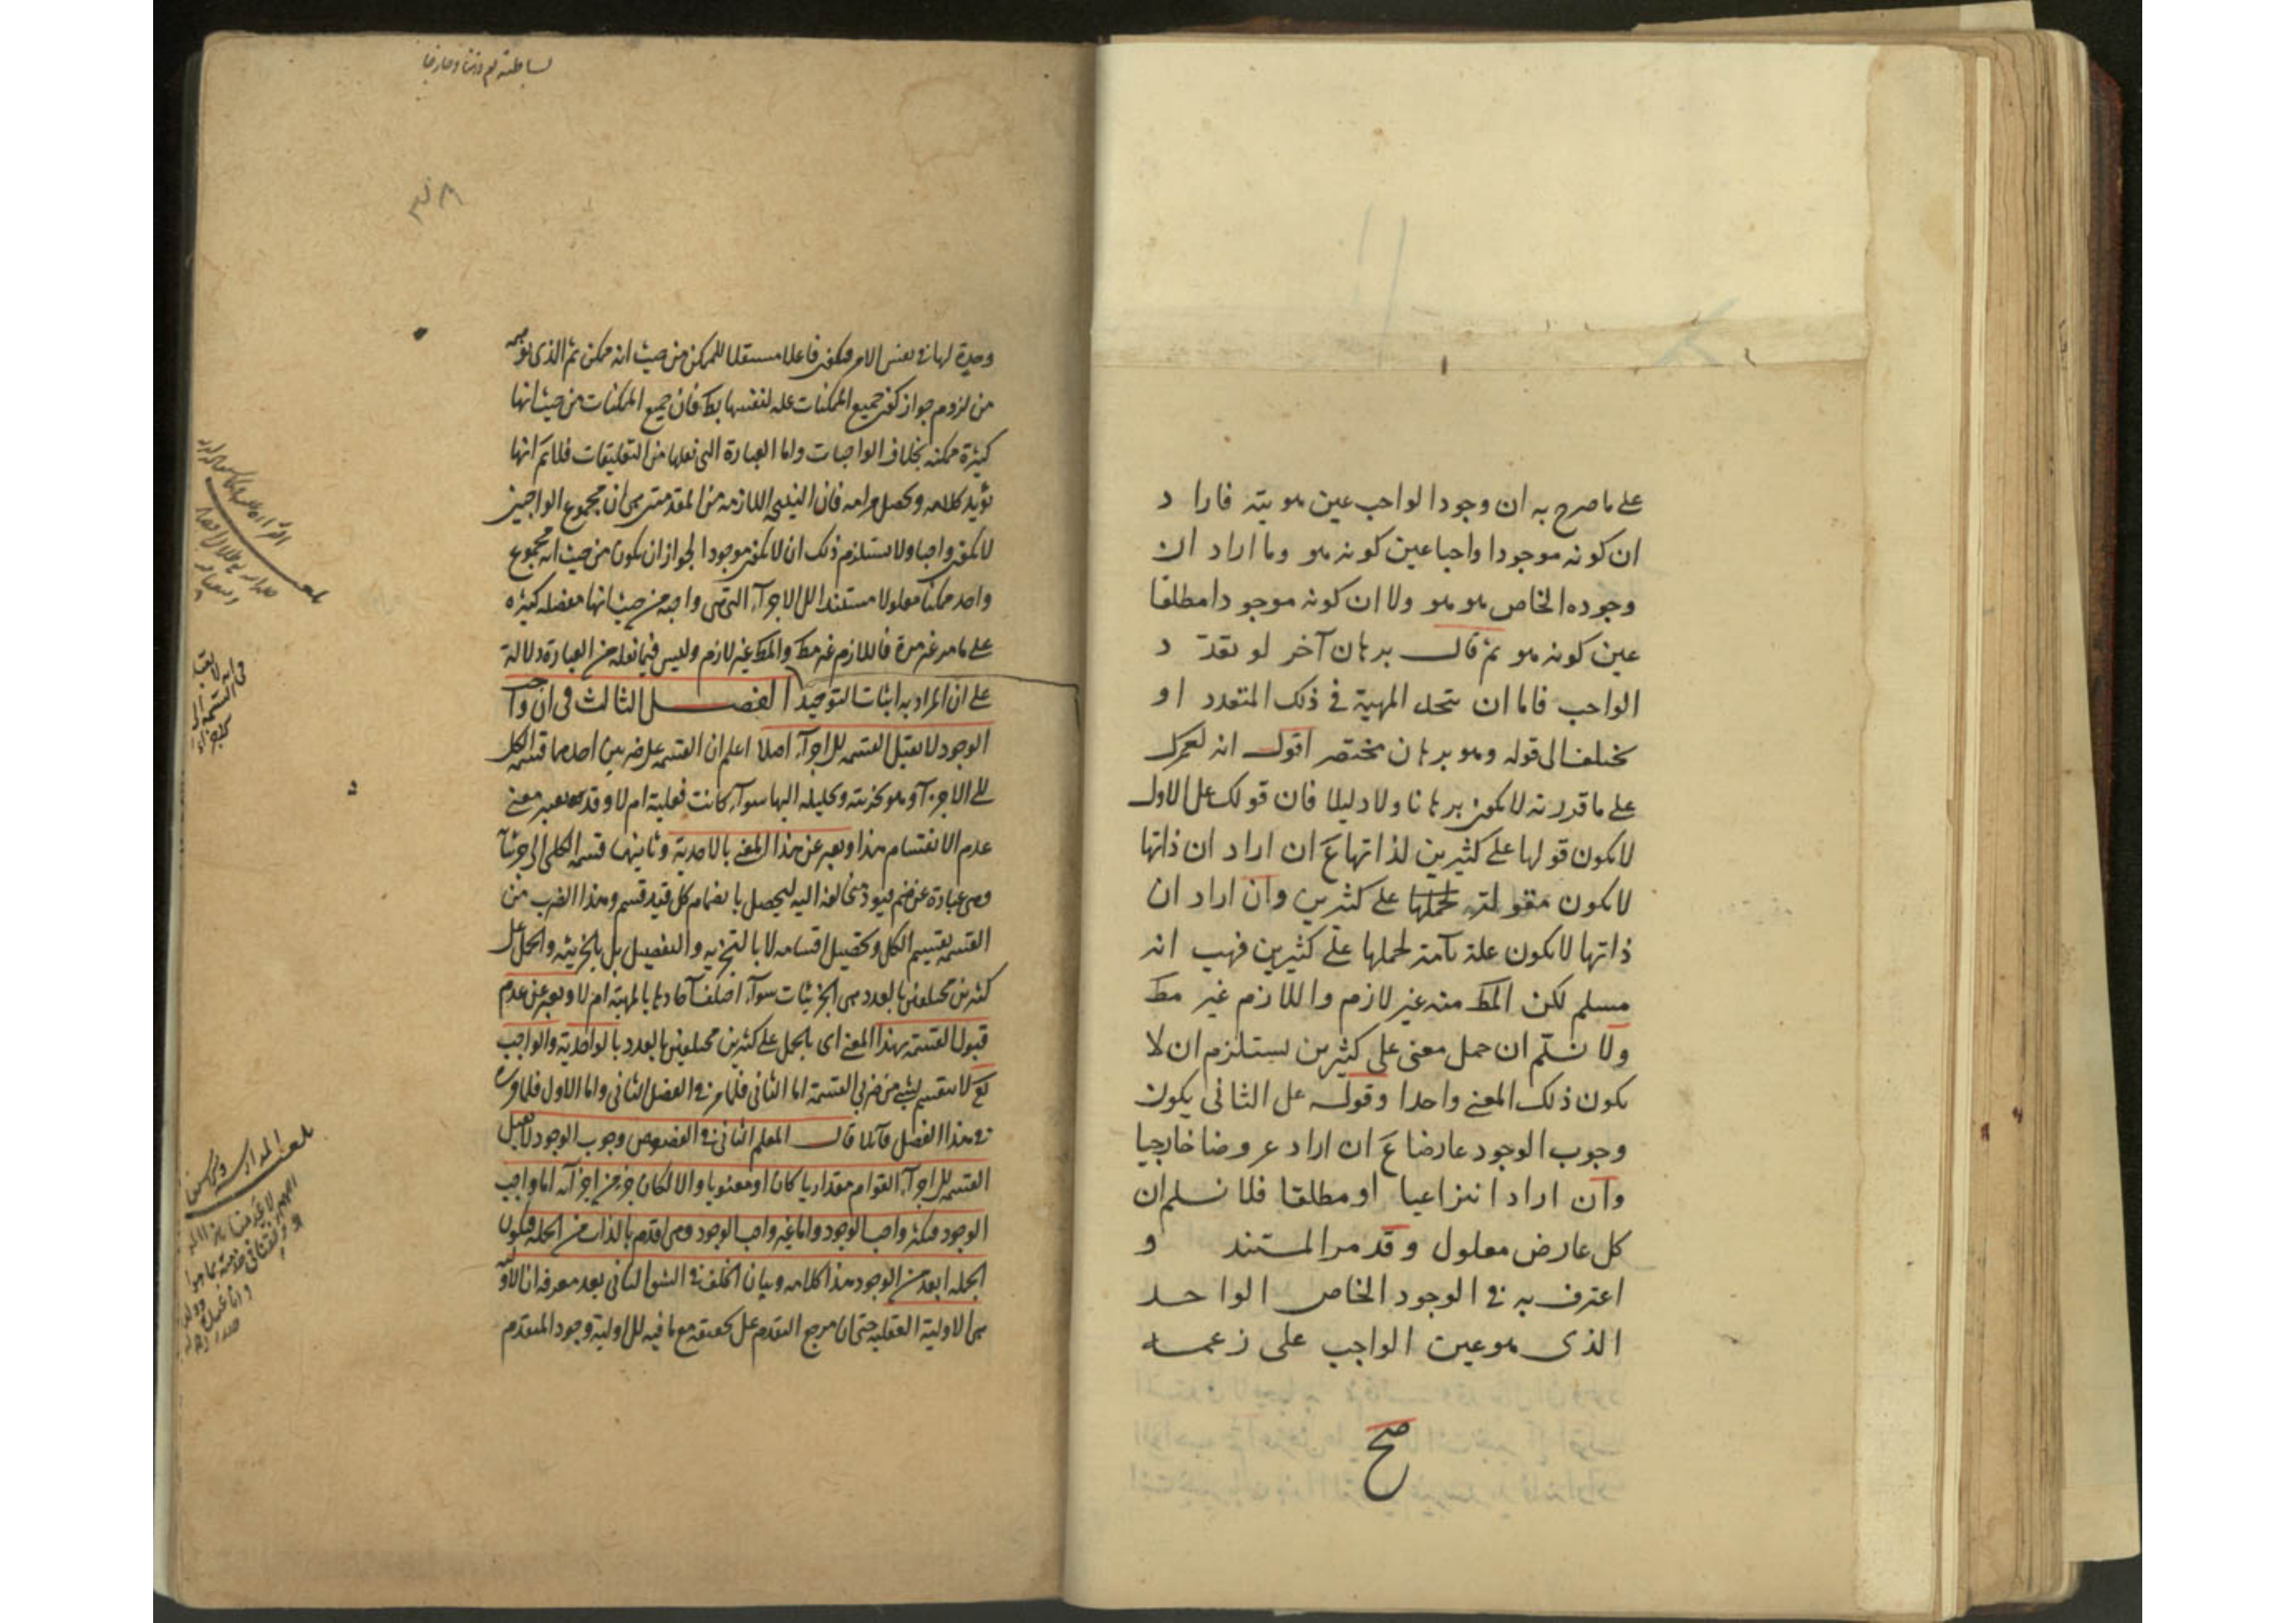 على ما صرح به ان وجود الواجب عين هويته فاراد
ان كونه موجودا واجبا عين كونه هو وما اراد ان
وجوده الخاص هو هو ولا ان كونه موجودا مطلقا
عين كونه هو ثم قال برهان آخر لو تعدد
الواجب فاما ان تتحد المهية في ذلك المتعدد او
تختلف الى قوله وهو برهان مختصر اقول انه لعمرك
على ما قررته لا يكون برهانا ولا دليلا فان قولك على الاول
لا يكون قولها على كثيرين لذاتها ع ان اراد ان ذاتها
لا يكون مقولته لحملها على كثيرين وان اراد ان
ذاتها لا يكون علة تامة لحملها على كثيرين فهب انه
مسلم لكن المط منه غير لازم واللازم غير مط
ولا نسلم ان حمل معنى على كثيرين يستلزم ان لا
يكون ذلك المعنى واحدا وقوله على الثاني يكون
وجوب الوجود عارضا ع ان اراد عروضا خارجيا
وان اراد انتزاعيا او مطلقا فلا نسلم ان
كل عارض معلول وقد مر المستند و
اعترف به في الوجود الخاص الواحد
الذى هو عين الواجب على زعمه
صح
وحدة لها في نفس الامر فيكون فاعلا مستقلا للممكن من حيث انه ممكن ثم الذى توهمه
من لزوم جواز كون جميع الممكنات علة لنفسها بط فان جميع الممكنات من حيث انها
كثيرة ممكنة بخلاف الواجبات واما العبارة التي نقلها من التعليقات فلا نم انها
تؤيد كلامه وتحصل مرامه فان النتيجة اللازمة من المقدمتين هي ان مجموع الواجبين
لا يكون واجبا ولا يستلزم ذلك ان لا يكون موجودا لجواز ان يكون من حيث انه مجموع
واحد ممكنا معلولا مستندا الى الاجزآء التي هي واجبة من حيث انها مفصلة كثيرة
على ما مر غير مرة فاللازم غير مط والمط غير لازم وليس فيما نقله من العبارة دلالة
على ان المراد به اثبات التوحيد الفصل الثالث في ان واجب
الوجود لا يقبل القسمة للاجزآء اصلا اعلم ان القسمة على ضربين احدهما قسمة الكل
الى الاجزآء وهو تجزيته وتحليله اليها سوآء كانت فعلية ام لا وقد يعبر معنى
عدم الانقسام هذا ويعبر عن هذا المعنى بالاحدية وثانيهما قسمة الكلي الى جزئياته
وهي عبارة عن ضم قيود متخالفة اليه ليحصل بانضمام كل قيد قسم وهذا الضرب من
القسمة تقسيم الكل وتحصيل اقسامه لا بالتجزية والتفصيل بل بالجزئية والحمل على
كثيرين مختلفين بالعدد هي الجزئيات سوآء اختلف آحادها بالمهية ام لا ويعبر عن عدم
قبول القسمة بهذا المعنى اى بالحمل على كثيرين مختلفين بالعدد بالواحدية والواجب
تع لا ينقسم بشيء من ضربي القسمة اما الثاني فلما مر في الفصل الثاني واما الاول فلما ورد
في هذا الفصل قائلا قال المعلم الثاني في الفصوص وجوب الوجود لا يقبل
القسمة للاجزآء القوام مقداريا كان او معنويا والا لكان جزء من اجزآئه اما واجب
الوجود فيكثر واجب الوجود واما غير واجب الوجود وهي اقدم بالذات من الجملة فيكون
الجملة ابعد من الوجود هذا كلامه وبيان الخلف في الشق الثاني بعد معرفة ان الاولية
هي الاولية العقلية حتى ان مرجع التقدم على تحققه مع ما فيه للاولية وجود المتقدم